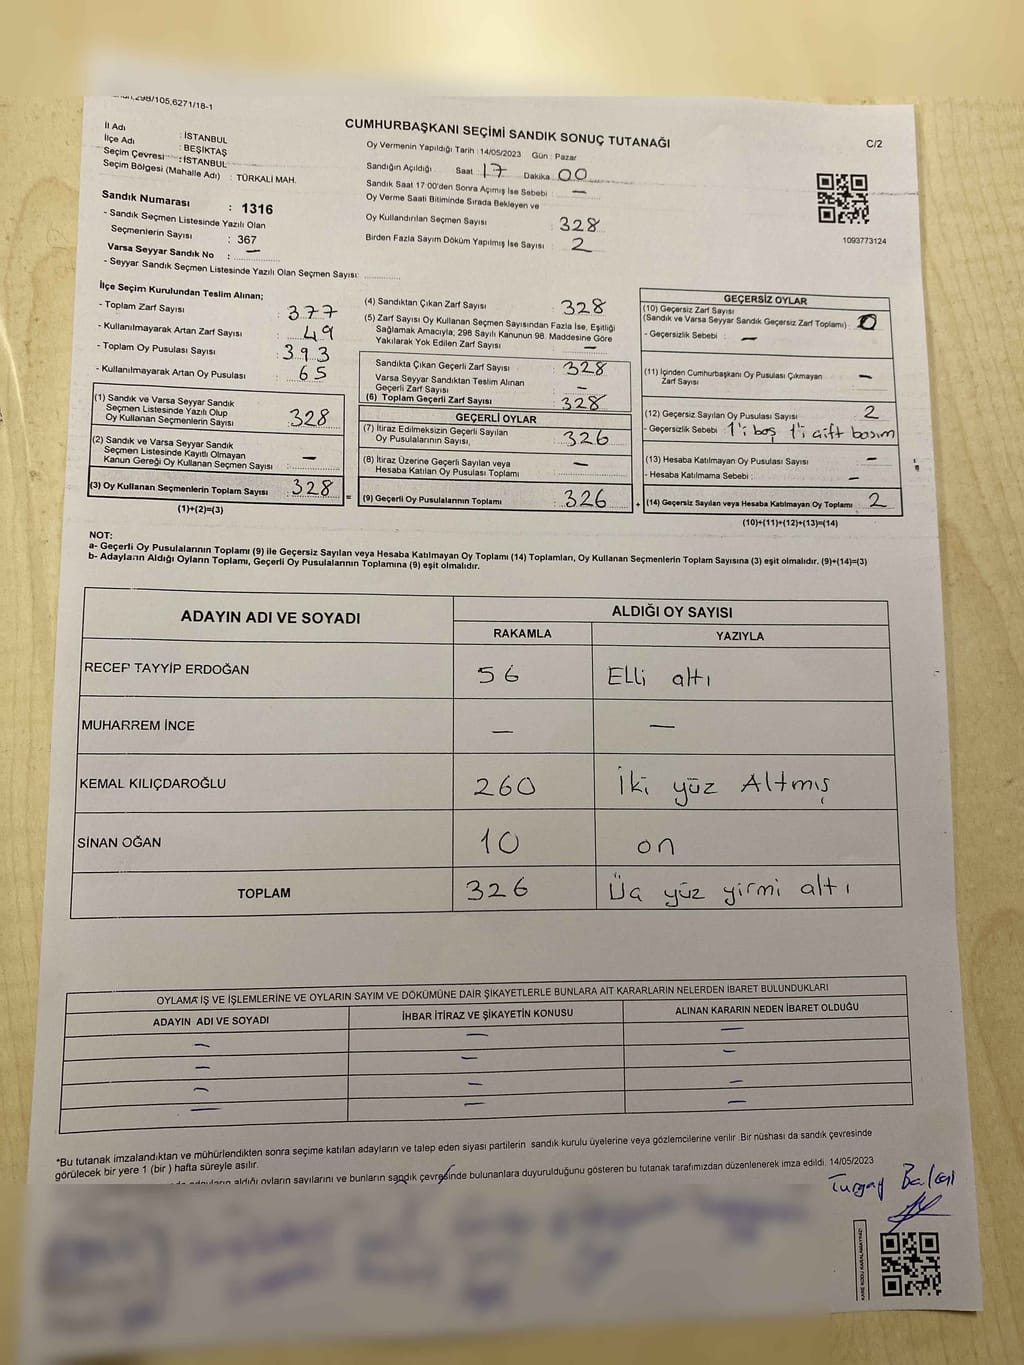 298/105,6271/18-1
CUMHURBAŞKANI SEÇİMİ SANDIK SONUÇ TUTANAĞI
C/2
İl Adı : İSTANBUL
İlçe Adı : BEŞİKTAŞ
Seçim Çevresi : İSTANBUL
Seçim Bölgesi (Mahalle Adı) : TÜRKALİ MAH.
Sandık Numarası : 1316
- Sandık Seçmen Listesinde Yazılı Olan
Seçmenlerin Sayısı : 367
Varsa Seyyar Sandık No : —
- Seyyar Sandık Seçmen Listesinde Yazılı Olan Seçmen Sayısı:
Oy Vermenin Yapıldığı Tarih : 14/05/2023 Gün : Pazar
Sandığın Açıldığı Saat 17 Dakika 00
Sandık Saat 17 00'den Sonra Açımış İse Sebebi : —
Oy Verme Saati Bitiminde Sırada Bekleyen ve
Oy Kullandırılan Seçmen Sayısı : 328
Birden Fazla Sayım Döküm Yapılmış İse Sayısı : 2
1093773124
İlçe Seçim Kurulundan Teslim Alınan;
- Toplam Zarf Sayısı : 377
- Kullanılmayarak Artan Zarf Sayısı : 49
- Toplam Oy Pusulası Sayısı : 393
- Kullanılmayarak Artan Oy Pusulası : 65
(1) Sandık ve Varsa Seyyar Sandık
Seçmen Listesinde Yazılı Olup
Oy Kullanan Seçmenlerin Sayısı : 328
(2) Sandık ve Varsa Seyyar Sandık
Seçmen Listesinde Kayıtlı Olmayan
Kanun Gereği Oy Kullanan Seçmen Sayısı : —
(3) Oy Kullanan Seçmenlerin Toplam Sayısı : 328
(1)+(2)=(3)
=
(4) Sandıktan Çıkan Zarf Sayısı : 328
(5) Zarf Sayısı Oy Kullanan Seçmen Sayısından Fazla İse, Eşitliği
Sağlamak Amacıyla; 298 Sayılı Kanunun 98. Maddesine Göre
Yakılarak Yok Edilen Zarf Sayısı : —
Sandıkta Çıkan Geçerli Zarf Sayısı : 328
Varsa Seyyar Sandıktan Teslim Alınan
Geçerli Zarf Sayısı : —
(6) Toplam Geçerli Zarf Sayısı : 328
GEÇERLİ OYLAR
(7) İtiraz Edilmeksizin Geçerli Sayılan
Oy Pusulalarının Sayısı, : 326
(8) İtiraz Üzerine Geçerli Sayılan veya
Hesaba Katılan Oy Pusulası Toplamı : —
(9) Geçerli Oy Pusulalarının Toplamı : 326
+
GEÇERSİZ OYLAR
(10) Geçersiz Zarf Sayısı
(Sandık ve Varsa Seyyar Sandık Geçersiz Zarf Toplamı) : 0
- Geçersizlik Sebebi : —
(11) İçinden Cumhurbaşkanı Oy Pusulası Çıkmayan
Zarf Sayısı : —
(12) Geçersiz Sayılan Oy Pusulası Sayısı : 2
- Geçersizlik Sebebi : 1'i boş 1'i çift basım
(13) Hesaba Katılmayan Oy Pusulası Sayısı : —
- Hesaba Katılmama Sebebi : —
(14) Geçersiz Sayılan veya Hesaba Katılmayan Oy Toplamı : 2
(10)+(11)+(12)+(13)=(14)
NOT:
a- Geçerli Oy Pusulalarının Toplamı (9) ile Geçersiz Sayılan veya Hesaba Katılmayan Oy Toplamı (14) Toplamları, Oy Kullanan Seçmenlerin Toplam Sayısına (3) eşit olmalıdır. (9)+(14)=(3)
b- Adayların Aldığı Oyların Toplamı, Geçerli Oy Pusulalarının Toplamına (9) eşit olmalıdır.
ADAYIN ADI VE SOYADI ALDIĞI OY SAYISI
RAKAMLA YAZIYLA
RECEP TAYYİP ERDOĞAN 56 Elli altı
MUHARREM İNCE — —
KEMAL KILIÇDAROĞLU 260 İki yüz Altmış
SİNAN OĞAN 10 on
TOPLAM 326 Üç yüz yirmi altı
OYLAMA İŞ VE İŞLEMLERİNE VE OYLARIN SAYIM VE DÖKÜMÜNE DAİR ŞİKAYETLERLE BUNLARA AİT KARARLARIN NELERDEN İBARET BULUNDUKLARI
ADAYIN ADI VE SOYADI İHBAR İTİRAZ VE ŞİKAYETİN KONUSU ALINAN KARARIN NEDEN İBARET OLDUĞU
— — —
— — —
— — —
— — —
*Bu tutanak imzalandıktan ve mühürlendikten sonra seçime katılan adayların ve talep eden siyasi partilerin sandık kurulu üyelerine veya gözlemcilerine verilir. Bir nüshası da sandık çevresinde
görülecek bir yere 1 (bir) hafta süreyle asılır.
adayların aldığı oyların sayılarını ve bunların sandık çevresinde bulunanlara duyurulduğunu gösteren bu tutanak tarafımızdan düzenlenerek imza edildi. 14/05/2023
Turgay
KARE KODU KARALAMAYINIZ!